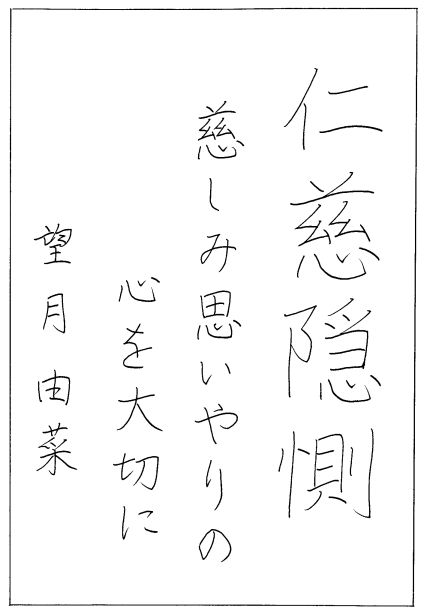 仁慈隠惻
慈しみ思いやりの
心を大切に
望月由菜